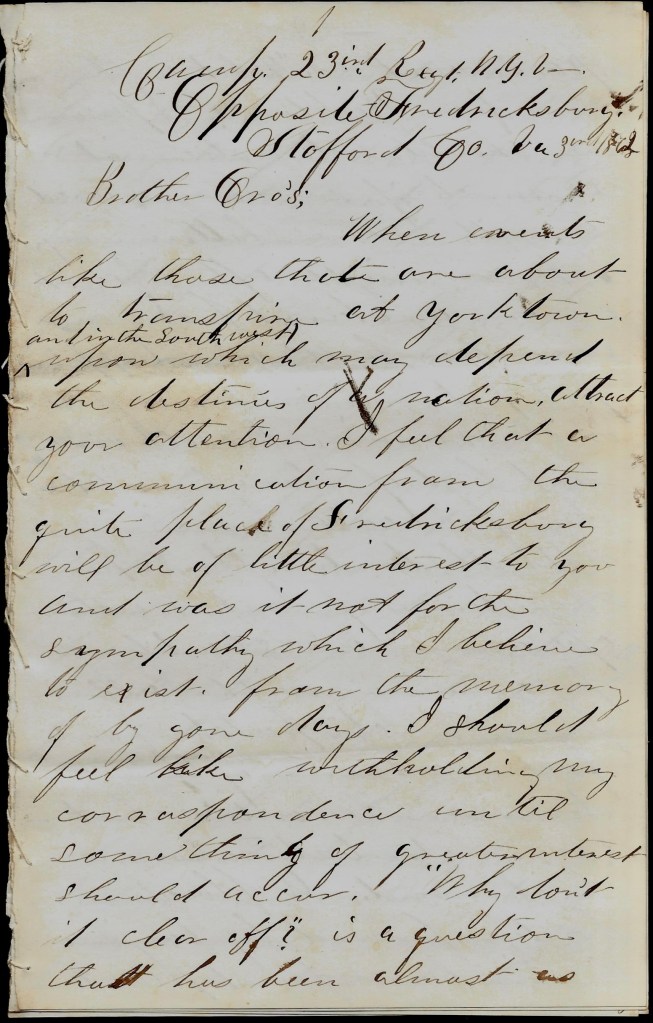 1
Camp. 23rd Regt. N.Y.V.
Opposite Fredricksburg.
Stafford Co. Va 3rd 1862
Brother Cro's;
When events
like those that are about
to transpire at Yorktown.
and in the South west
upon which may depend
the destinies of a nation, attract
your attention. I feel that a
communication from the
quite place of Fredricksburg
will be of little interest to you
and was it not for the
sympathy which I believe
to exist. from the memory
of by gone days. I should
feel like withholding my
correspondence until
something of greater interest
should occur. "Why don't
it clear off"? is a question
that has been almost as